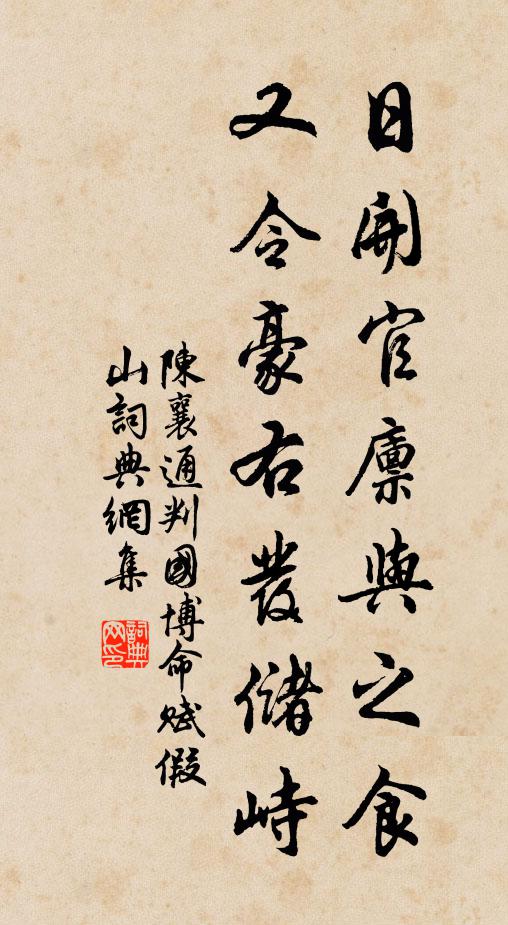 日開官廪與之食
又令豪右發儲峙
陳襄通判國博命賦假
山詞典網集
詞典
網印